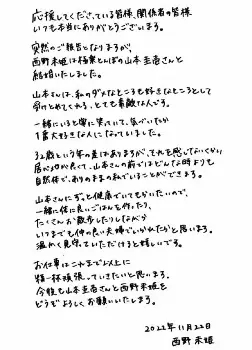 応援してくださっている皆様、関係者の皆様
いつも本当にありがとうございます。
突然のご報告となりますが、
西野未姫は極楽とんぼの山本圭壱さんと
結婚いたしました。
山本さんは、私のダメなところも好きなところとして
受けとめてくれる、とても素敵な人です。
一緒にいると常に笑っていて、気づいたら
1番大好きな人になっていました。
32歳という年の差はありますが、それを感じないくらい
居心地が良くて、山本さんの前ではどんな時よりも
自然体で、ありのままの私でいることができます。
山本さんにずっと健康でいてもらいたいので、
一緒に体に良いごはんを作ったり、
たくさんお散歩したりしながら
いつまでも仲の良い夫婦でいられたらと思います。
温かく見守っていただけると嬉しいです。
お仕事はこれまで以上に
精一杯頑張っていきたいと思います。
今後も山本圭壱さんと西野未姫を
どうぞよろしくお願いいたします。
2022年11月22日
西野 未姫